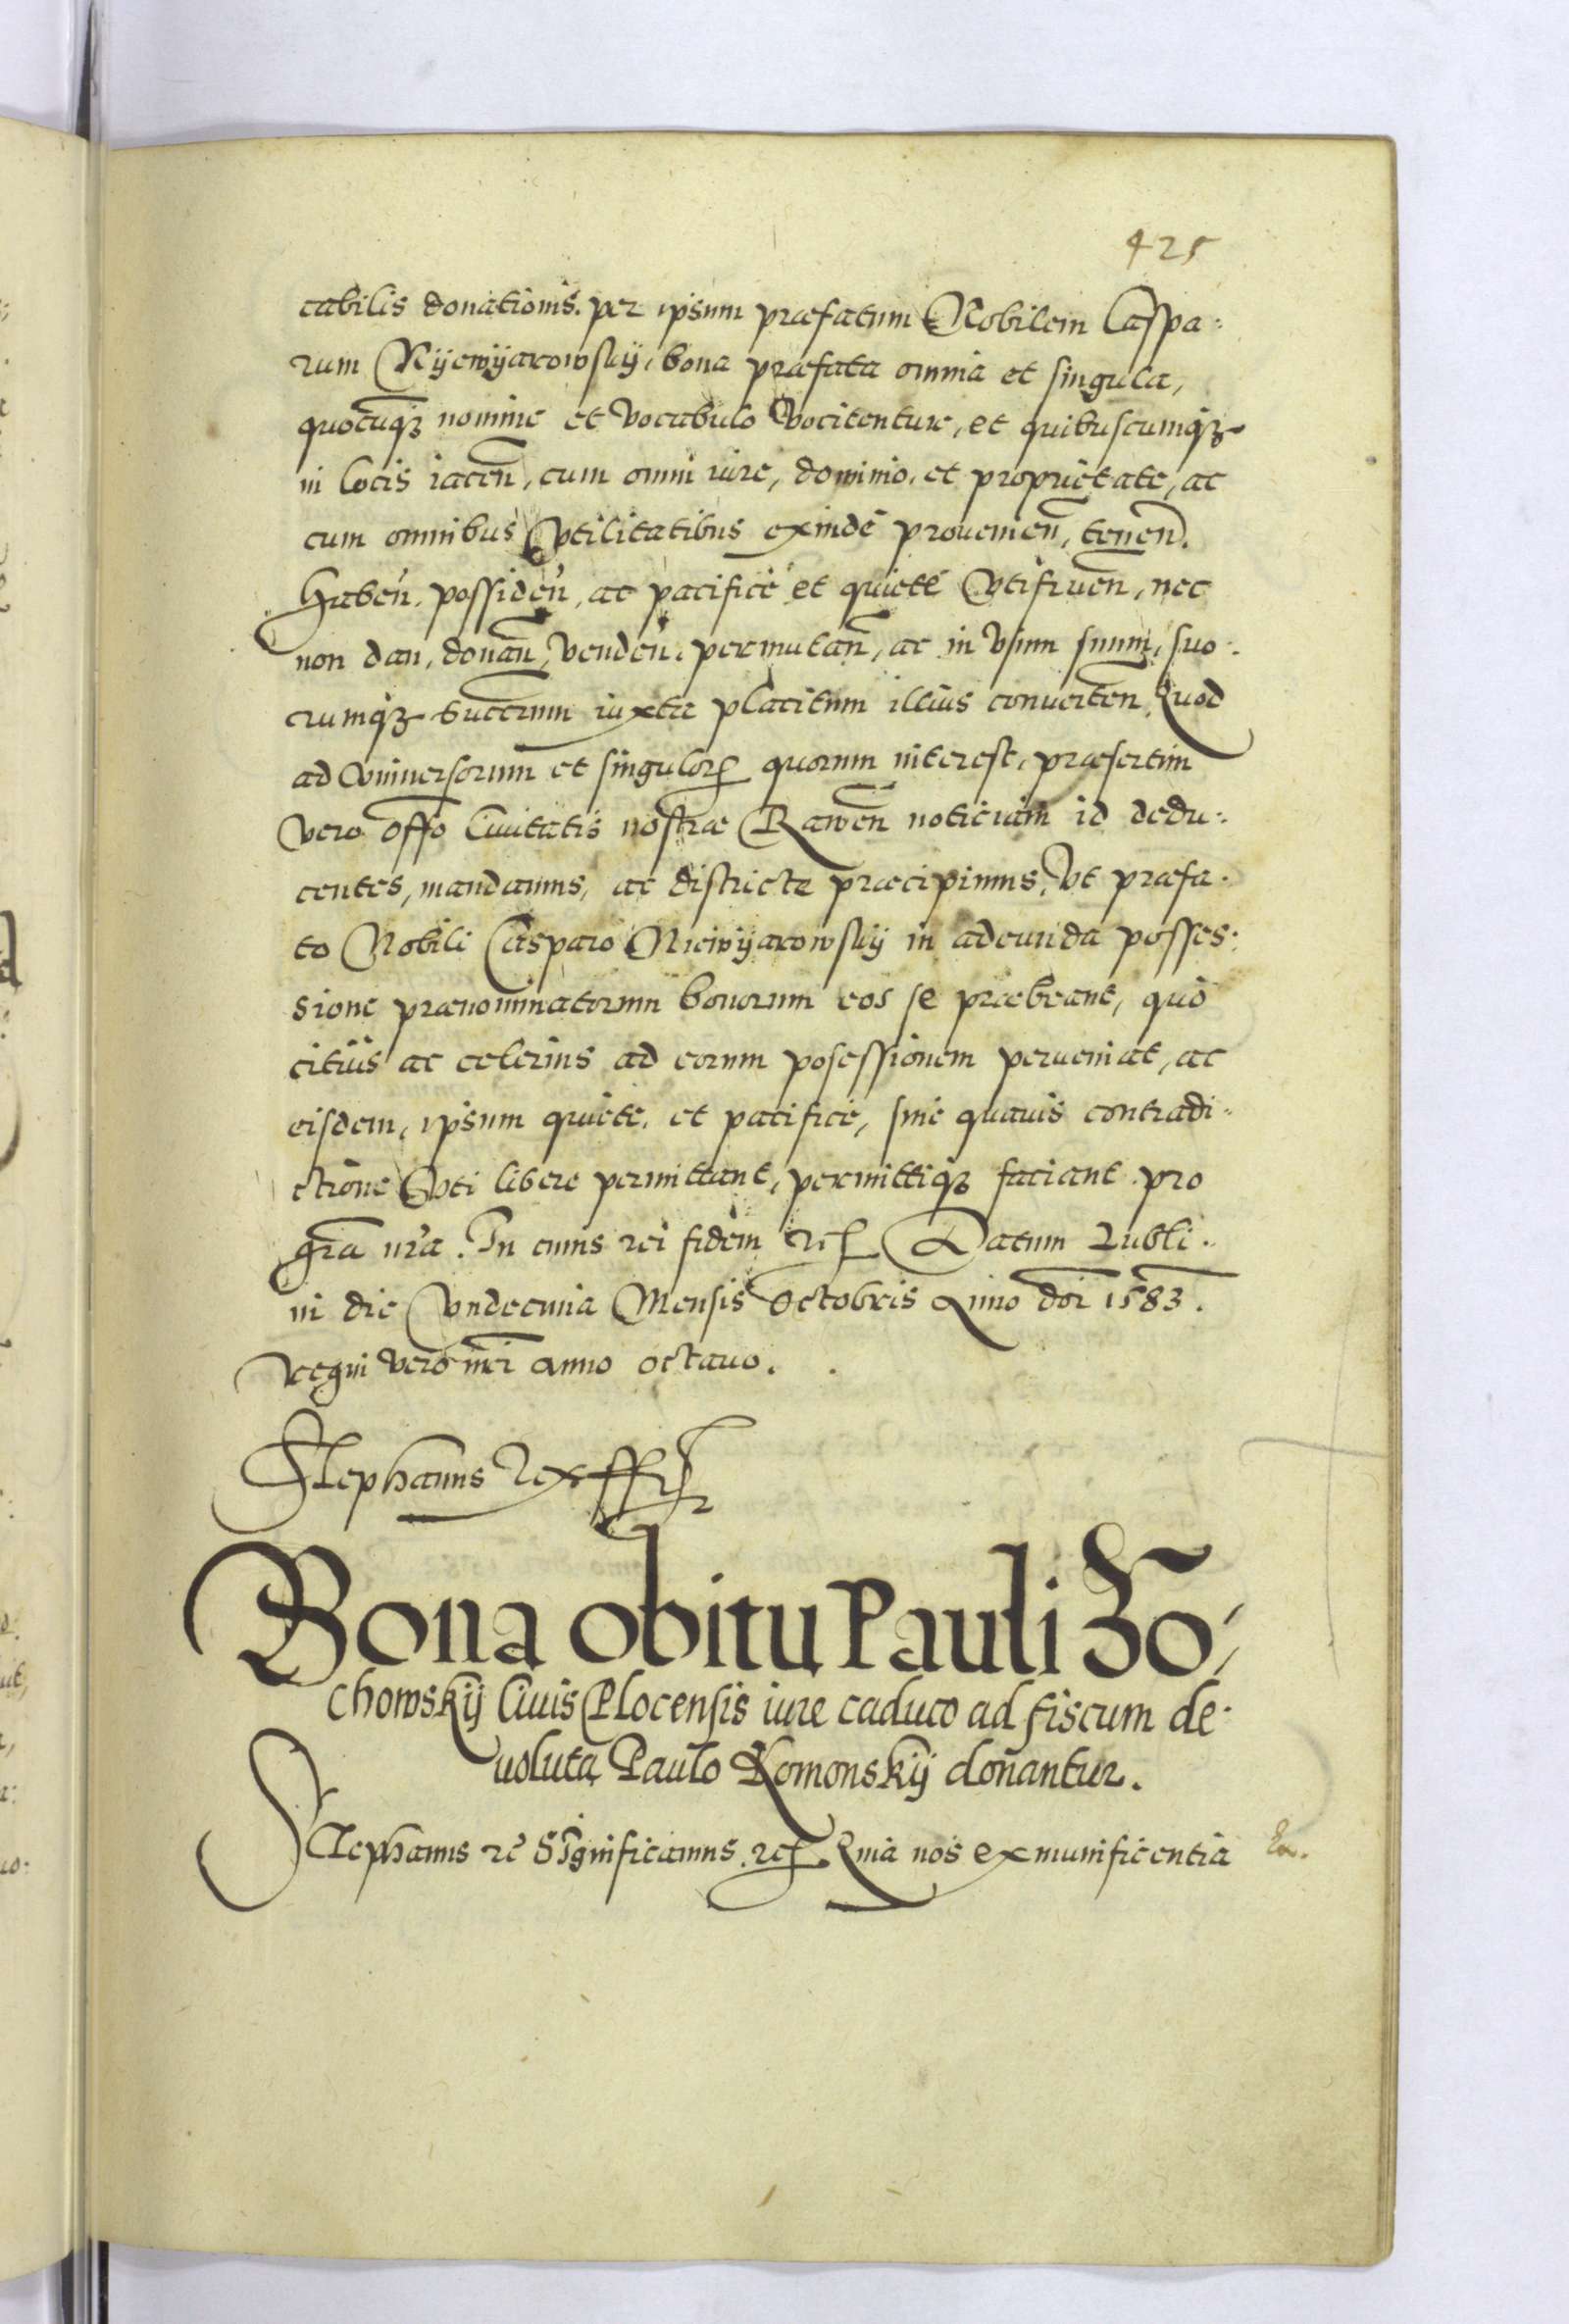 425
cabilis donationis. per ipsum præfatum Nobilem Caspa:
rum Nyewyarowsky, bona præfata omnia et singula,
quocūqꝫ nomine et vocabulo vocitentur, et quibuscumqꝫ
in locis iaceñ, cum omni iure, dominio, et proprietate, ac
cum omnibus vtilitatibus exinde prouenieñ, teneñ.
habeñ, possideñ, ac pacifice et quiete vtifrueñ, nec
non dan, donañ, vendeñ, permutañ, ac in vsum suum, suo:
rumqꝫ succrum iuxta placitum illius conuerteñ Quod
ad vniuersorum et singuloꝝ quorum interest, præsertim
vero offo Ciuitatis nostræ Raweñ noticiam id dedu:
centes, mandamus, ac districte præcipimus, Vt præfa:
to Nobili Casparo Niewyarowsky in adeunda posses:
sione prænominatorum bonorum eos se præbeant, quò
citiùs ac celerius ad eorum posessionem perueniat, ac
eisdem, ipsum quiete, et pacifice, sine quauis contradi:
ctione vti libere permittant, permittiqꝫ faciant pro
gr̃a nr̃a. In cuius rei fidem etc Datum Lubli:
ni die vndecima Mensis Octobris Anno dni 1583.
regni vero nr̃i anno octauo.
Stephanus Rex ssr̃
Bona obitu Pauli Zo,
chowskÿ Ciuis Plocensis iure caduco ad fiscum de:
uoluta Paulo Komonskÿ donantur.
Stephanus etc Significamus. etc Quia nos ex munificentia